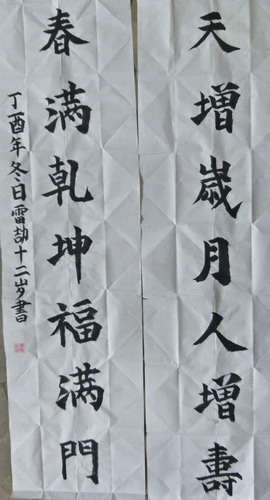 天增歲月人增壽
春满乾坤福满門
丁酉年冬日雷劼十二岁書